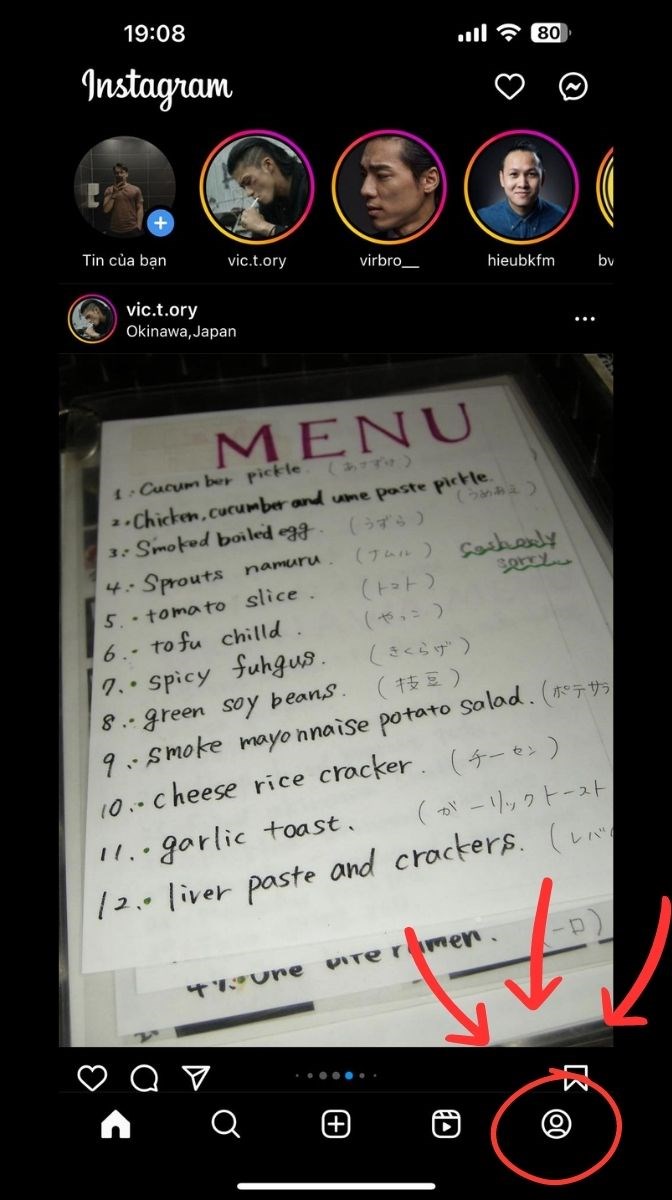 19:08
80
Instagram
Tin của bạn
vic.t.ory
virbro__
hieubkfm
bv
vic.t.ory
Okinawa,Japan
MENU
1.・Cucumber pickle. (あさずけ)
2.・Chicken, cucumber and ume paste pickle.
(うめあえ)
3.・Smoked boiled egg. (うずら)
4.・Sprouts namuru. (ナムル)
sorry
5.・tomato slice. (トマト)
6.・tofu chilld. (やっこ)
7.・spicy fuhgus. (きくらげ)
8.・green soy beans. (枝豆)
9.・smoke mayonnaise potato salad. (ポテサラ
10.・cheese rice cracker. (チーセン)
11.・garlic toast. (ガーリックトースト
12.・liver paste and crackers. (レバ
One bite ramen. (一口)